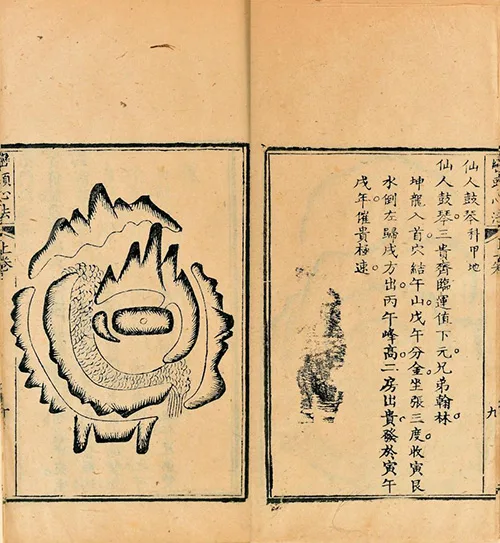 仙人鼓琴科甲地
仙人鼓琴三貴齊臨運值下元兄弟翰林
坤龍入首穴結午山戊午分金坐張三度收寅艮
水倒左歸戌方出丙午峰高二房出貴發於寅午
戌年催貴極速
九
巒頭心法
上卷